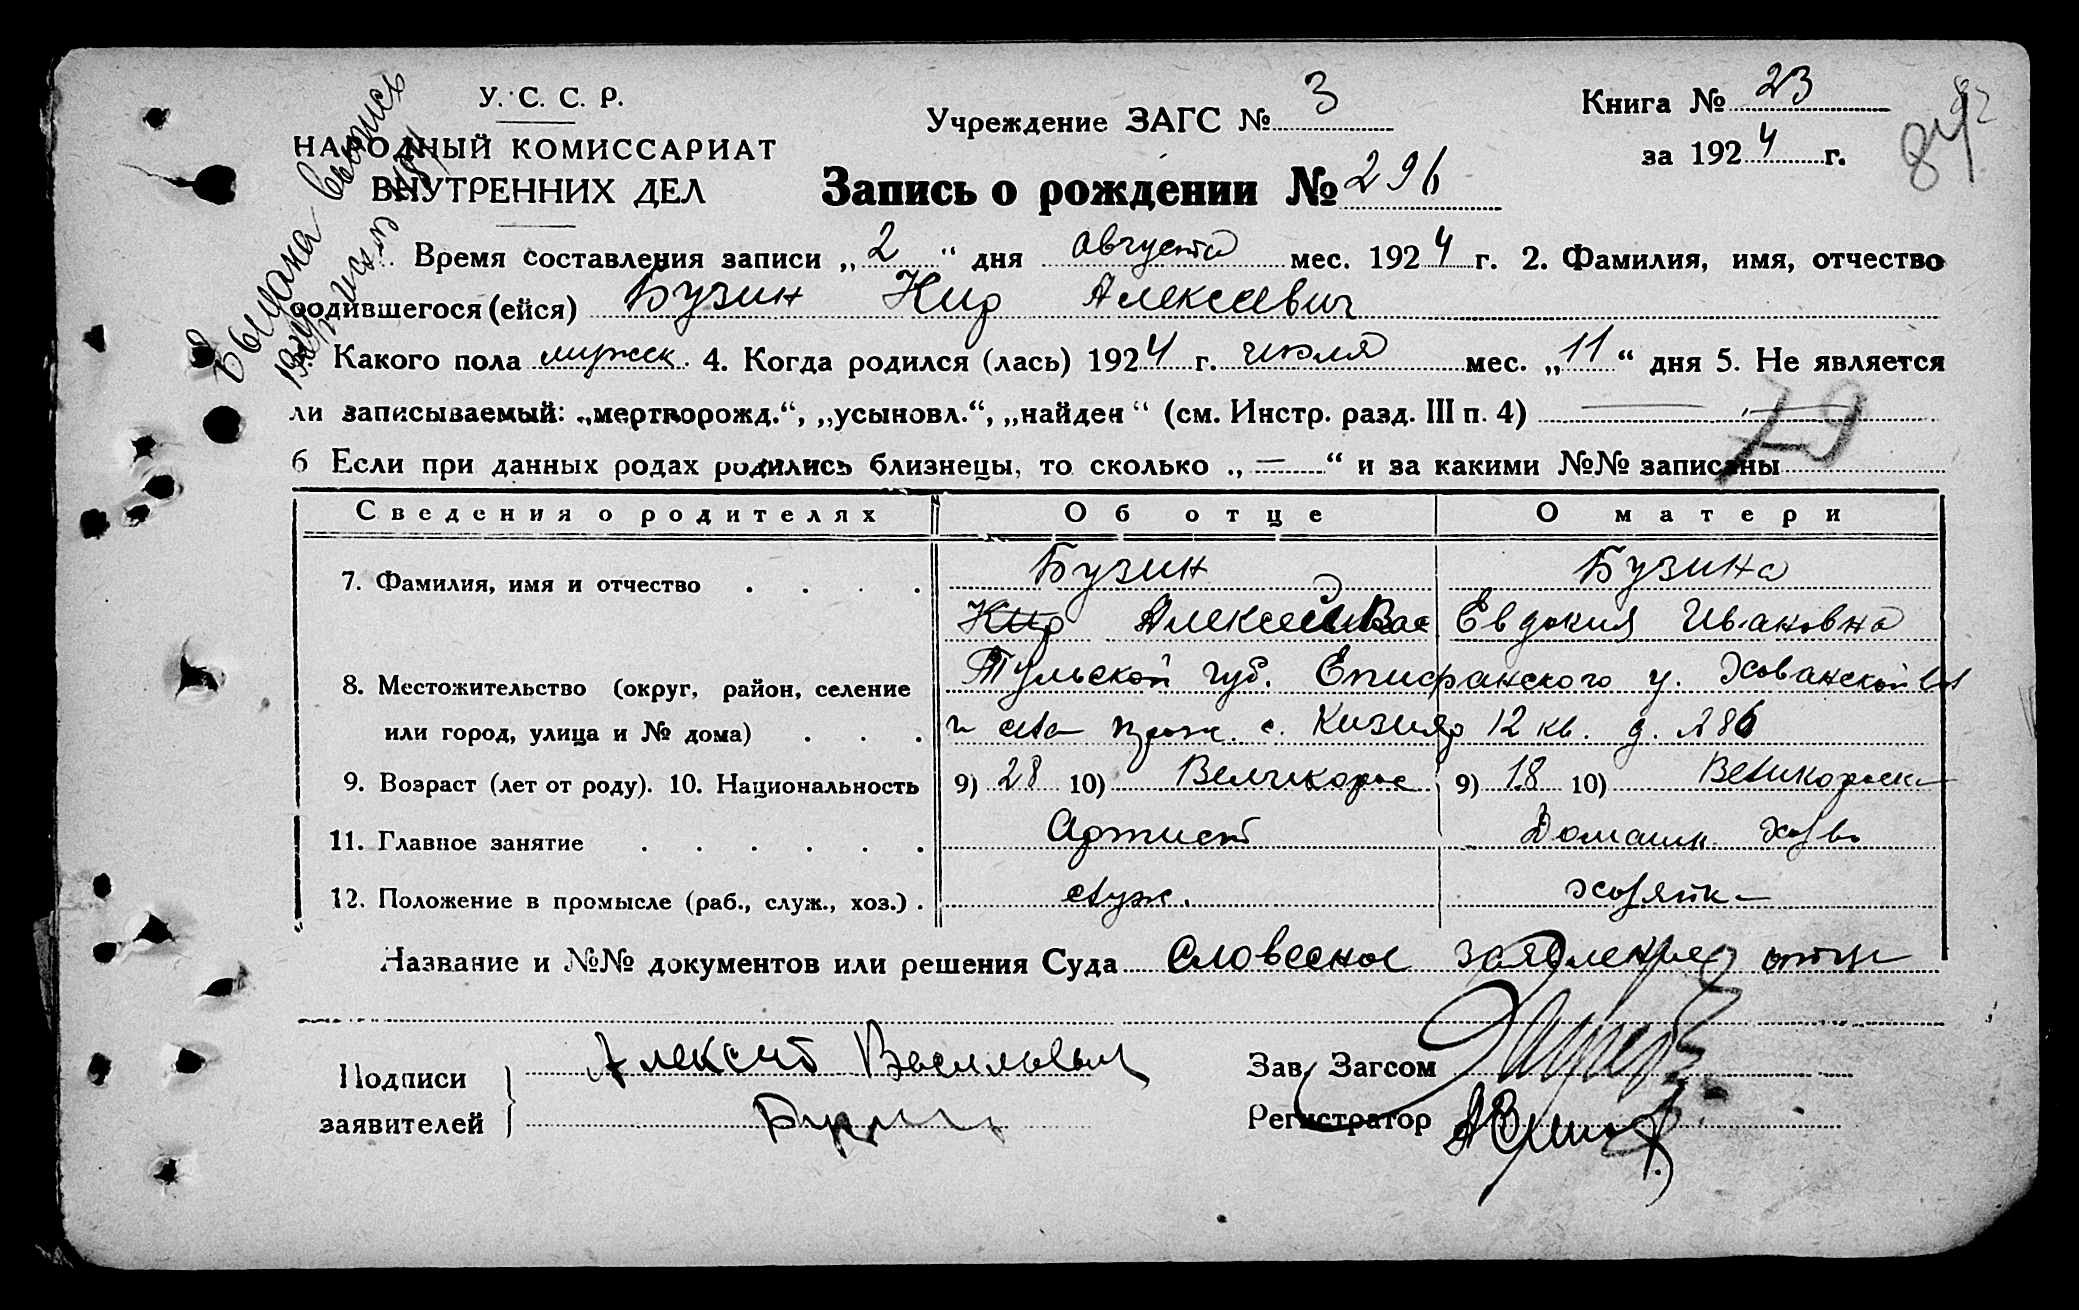 У. С. С. Р.
НАРОДНЫЙ КОМИССАРИАТ
ВНУТРЕННИХ ДЕЛ
Выдана выпись
Учреждение ЗАГС № 3
Книга № 23
за 1924 г.
84
Запись о рождении № 296
Время составления записи „2“ дня августа мес. 1924 г. 2. Фамилия, имя, отчество
родившегося (ейся) Бузин Кир Алексеевич
Какого пола мужск. 4. Когда родился (лась) 1924 г. июля мес. „11“ дня 5. Не является
ли записываемый: „мертворожд.“, „усыновл.“, „найден“ (см. Инстр. разд. III п. 4) —
79
6 Если при данных родах родились близнецы, то сколько „—“ и за какими №№ записаны
Сведения о родителях Об отце О матери
7. Фамилия, имя и отчество Бузин Бузина
Кир Алексей Вас Евдокия Ивановна
8. Местожительство (округ, район, селение Тульской губ. Епифанского у. Хованской вол
или город, улица и № дома) 12 кв. д. № 86
9. Возраст (лет от роду). 10. Национальность 9) 28 10) Великорос 9) 18 10) Великоросска
11. Главное занятие Артист Домашн. хоз-во
12. Положение в промысле (раб., служ., хоз.) служ. хозяйка
Название и №№ документов или решения Суда Словесное заявление отца
Подписи
заявителей
Алексей Васильевич
Бузин
Зав. Загсом
Регистратор